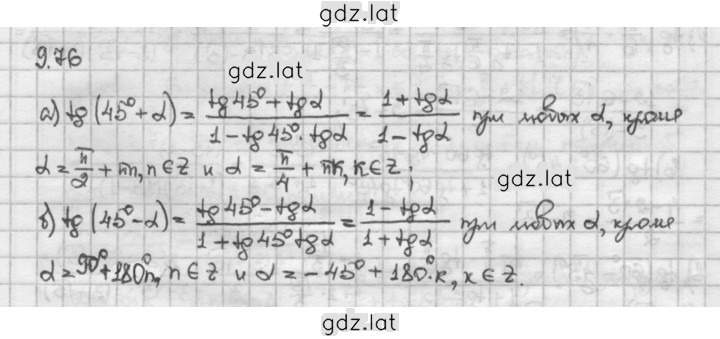 gdz.lat
9.76
gdz.lat
а) tg(45°+α) = (tg45°+tgα)/(1-tg45°·tgα) = (1+tgα)/(1-tgα) при любых α, кроме
α = π/2 + πn, n∈Z и α = π/4 + πk, k∈Z;
gdz.lat
б) tg(45°-α) = (tg45°-tgα)/(1+tg45°tgα) = (1-tgα)/(1+tgα) при любых α, кроме
α = 90°+180°n, n∈Z и α = -45°+180°·к, к∈Z.
gdz.lat